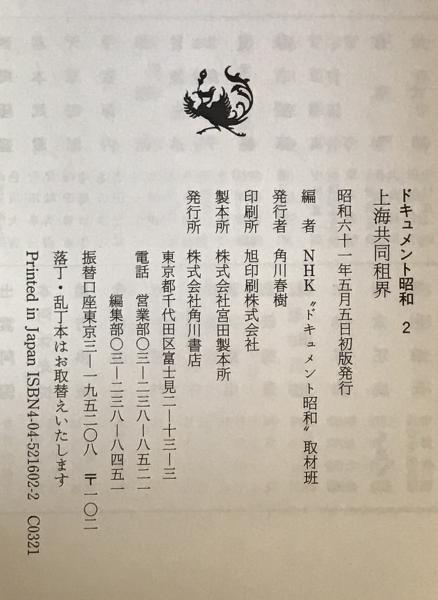 ドキュメント昭和　2
上海共同租界
昭和六十一年五月五日初版発行
編　者　NHK〝ドキュメント昭和〟取材班
発行者　角川春樹
印刷所　旭印刷株式会社
製本所　株式会社宮田製本所
発行所　株式会社角川書店
東京都千代田区富士見二―十三―三
電話　営業部〇三―二三八―八五二一
編集部〇三―二三八―八四五一
振替口座東京三―一九五二〇八　〒一〇二
落丁・乱丁本はお取替えいたします
Printed in Japan ISBN4-04-521602-2　C0321